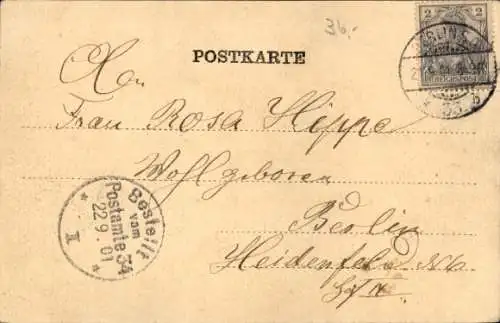 36,-
POSTKARTE
2
REICHSPOST
BERLIN
An
Frau Rosa Hippe
Wohlgeboren
Berlin
Heidenfeld
Bestellt
vom
Postamte 34
22 9. 01